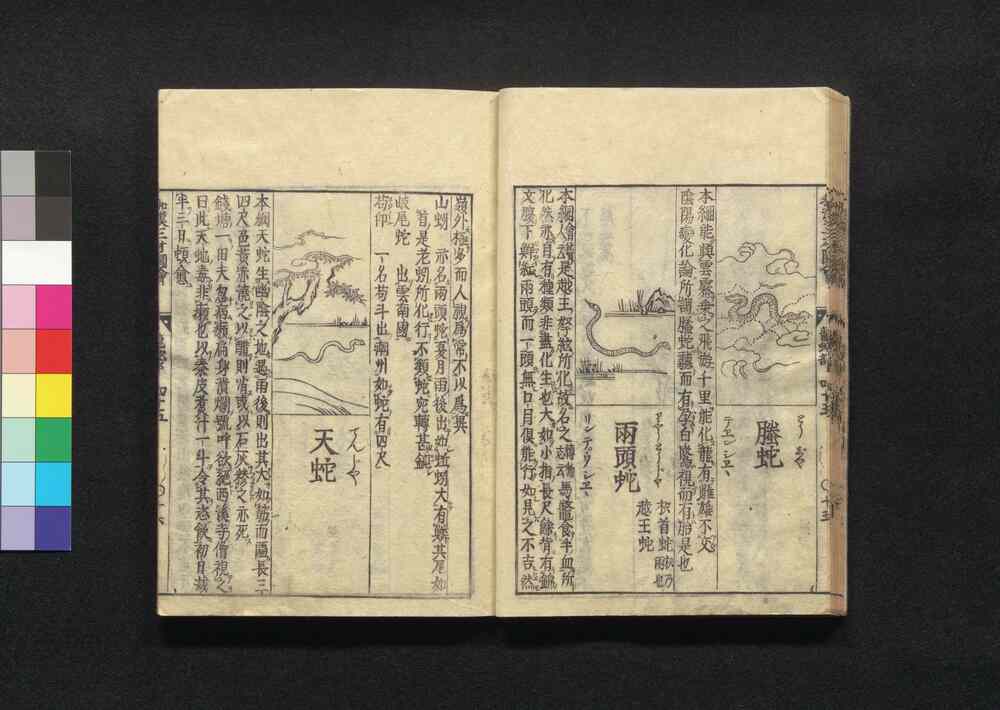 螣蛇
とうじや
テエンシエヽ
本綱能興雲霧乗之飛遊十里能化龍有雌雄不交
陰陽變化論所謂騰蛇聽而有孕白鷺視而有胎是也
兩頭蛇
りやうとうじや
リンテウシエヽ
枳首蛇
越王蛇
本綱會稽人云是越王弩絃所化故名之
化然亦自有種類非盡化生也大如小指長尺餘背有錦
文腹下鮮紅兩頭而一頭無口目俱能行如見之不吉然
嶺外極多而人視爲常不以爲異
山蚓 亦名兩頭蛇夏月雨後出如蚯蚓大有鱗其尾如
首是老蚓所化行不類蛇宛轉甚鈍
岐尾蛇 出雲南國
苟印 一名苟斗出潮州如蛇有四尺
天蛇
てんじや
本綱天蛇生幽陰之地遇雨後則出其大如筯而匾長三
四尺色黃赤澆之以醋則消或以石灰糝之亦死
錢塘一田夫忽病癩扁身潰爛號呼欲絕西溪寺僧視之
曰此天蛇毒非癩也以秦皮煮汁一斗令其恣飲初日减
半三日頓愈
四十五